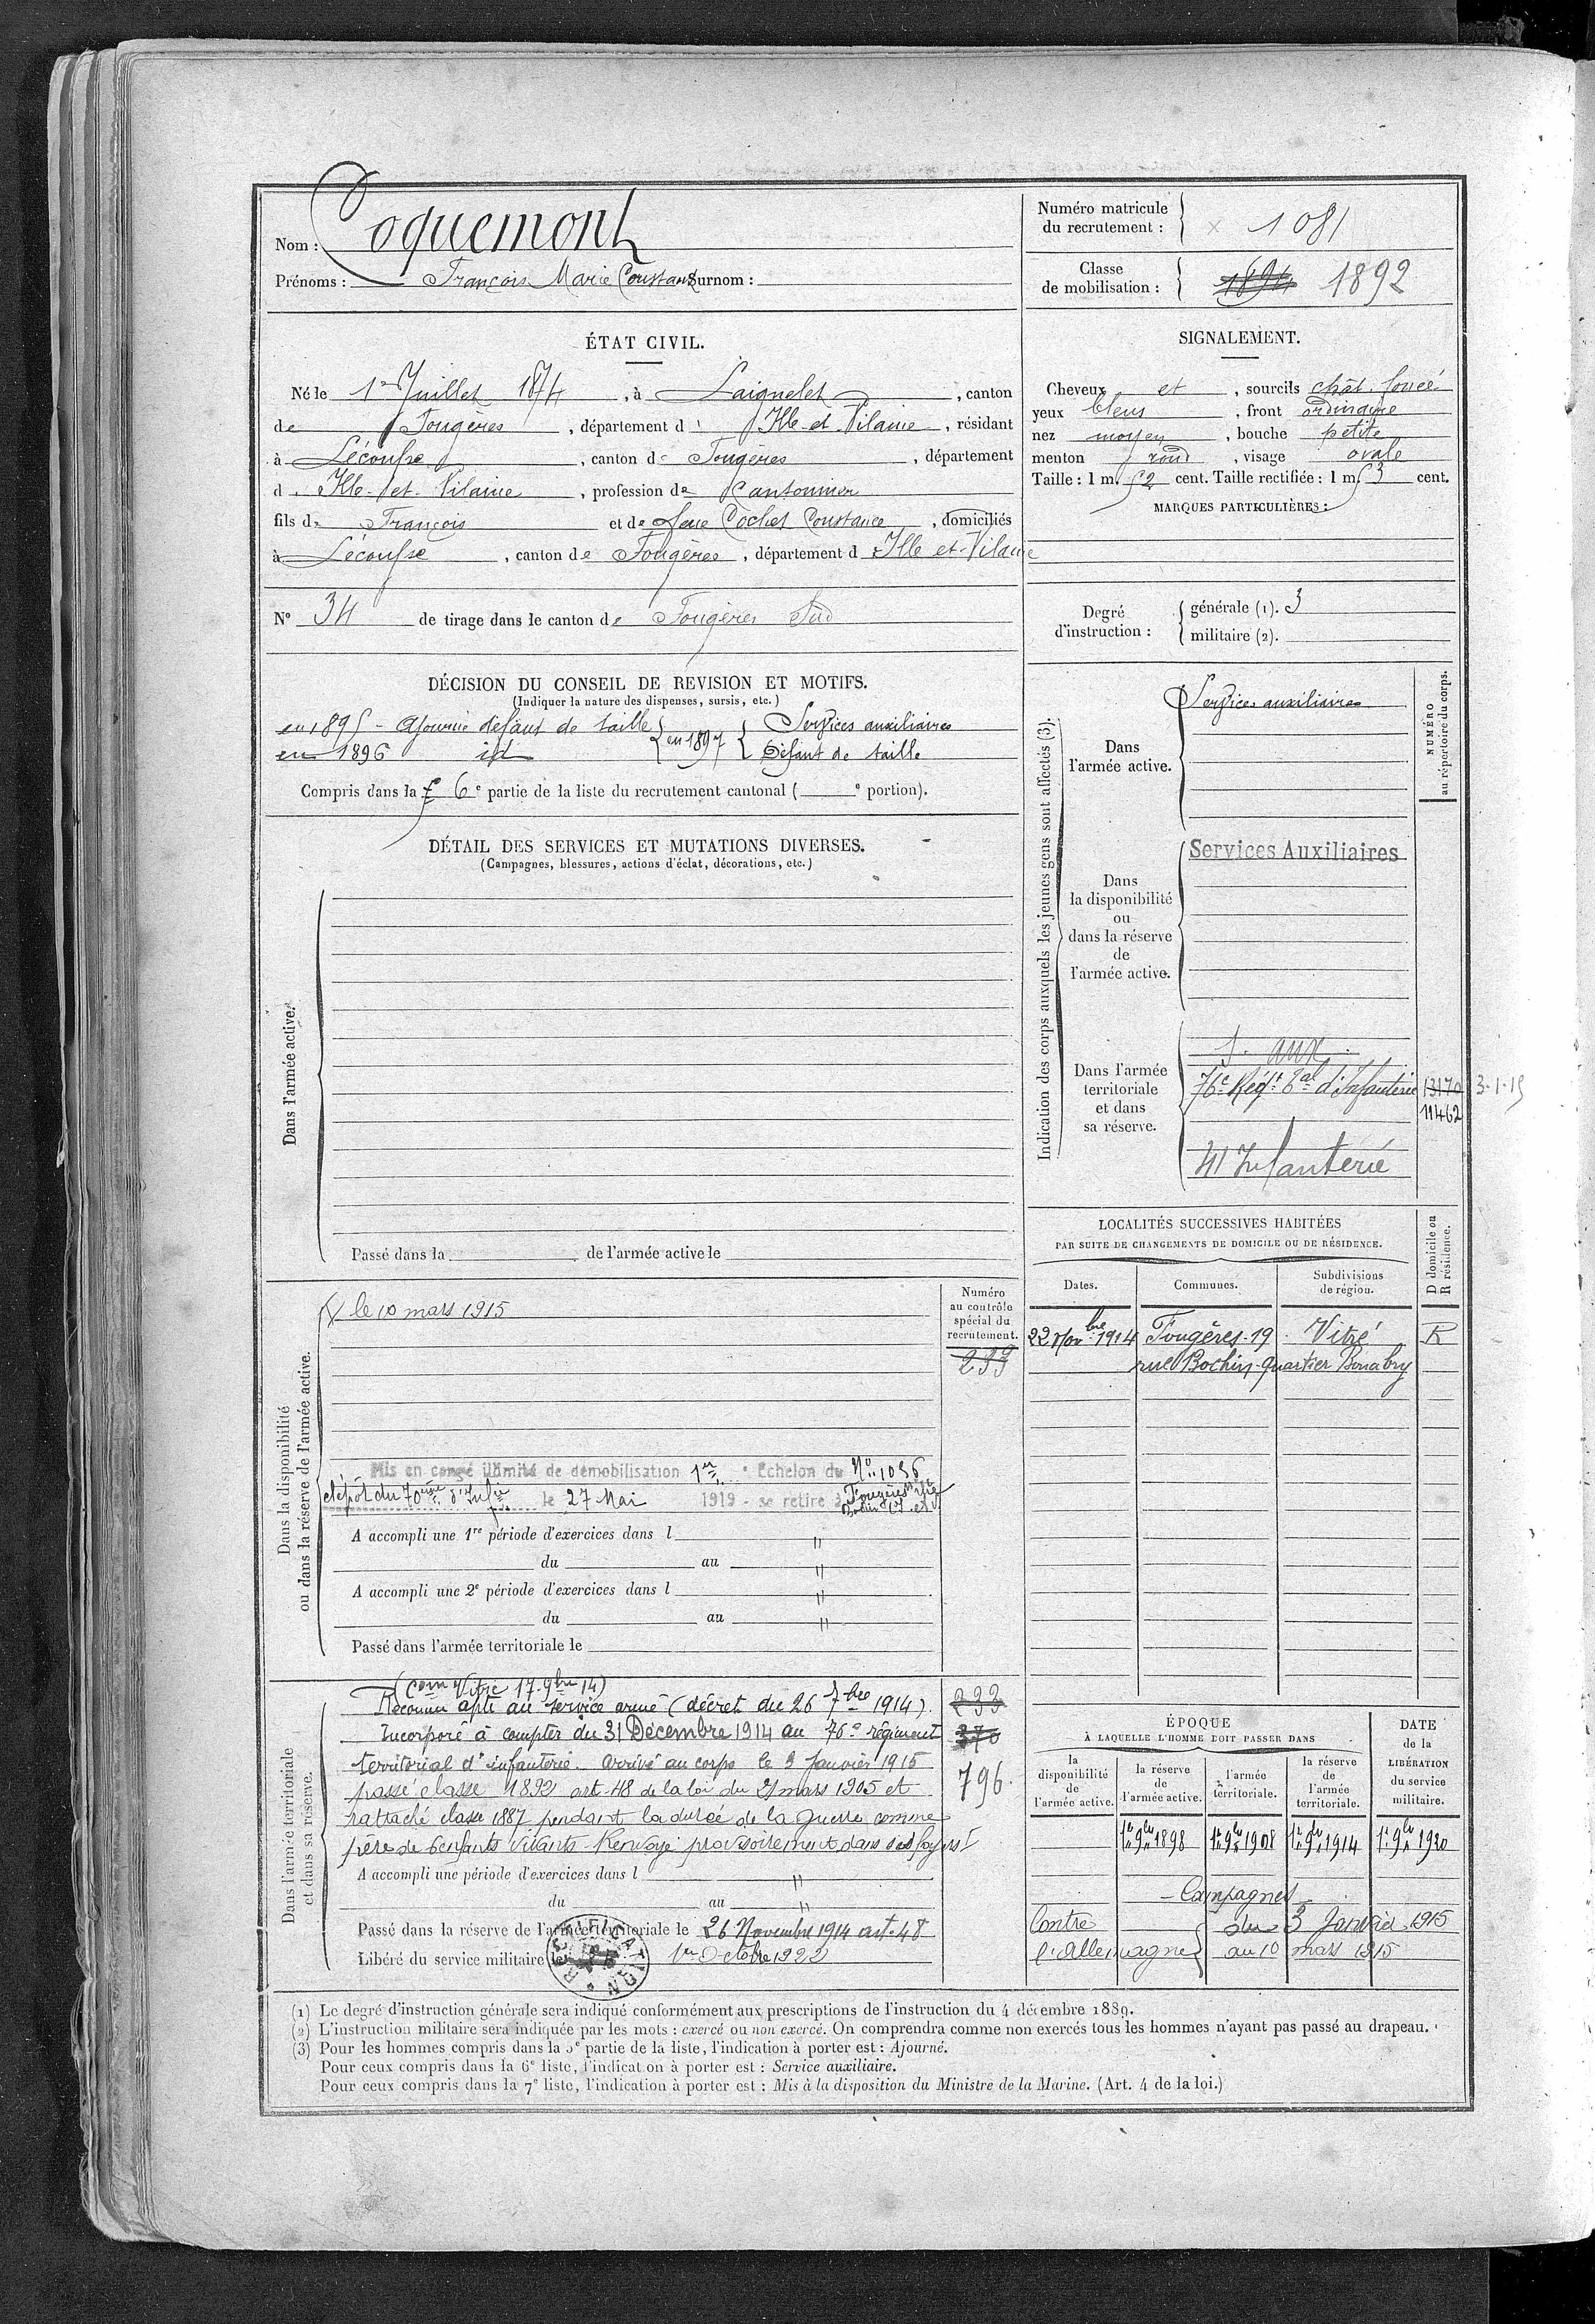 Nom : Coquemont
Prénoms : François Marie Constant Surnom :
Numéro matricule du recrutement : 1081
Classe de mobilisation : 1894 1892
ÉTAT CIVIL.
Né le 1er Juillet 1874, à Laignelet, canton
de Fougères, département d'Ille-et-Vilaine, résidant
à Lécousse, canton de Fougères, département
d'Ille-et-Vilaine, profession de Cantonnier
fils de François et de feue Cochet Constance, domiciliés
à Lécousse, canton de Fougères, département d'Ille-et-Vilaine
N° 34 de tirage dans le canton de Fougères Sud
SIGNALEMENT.
Cheveux et, sourcils chât. foncé
yeux bleus, front ordinaire
nez moyen, bouche petite
menton rond, visage ovale
Taille : 1 m. 52 cent. Taille rectifiée : 1 m. 53 cent.
MARQUES PARTICULIÈRES :
Degré d'instruction : générale (1). 3
militaire (2).
DÉCISION DU CONSEIL DE REVISION ET MOTIFS.
(Indiquer la nature des dispenses, sursis, etc.)
en 1895 - Ajourné défaut de taille
en 1896 id
en 1897 Services auxiliaires
Défaut de taille
Compris dans la 6e partie de la liste du recrutement cantonal ( e portion).
DÉTAIL DES SERVICES ET MUTATIONS DIVERSES.
(Campagnes, blessures, actions d'éclat, décorations, etc.)
Dans l'armée active.
Passé dans la de l'armée active le
Indication des corps auxquels les jeunes gens sont affectés (3).
NUMÉRO au répertoire du corps.
Dans l'armée active.
Services auxiliaires
Dans la disponibilité ou dans la réserve de l'armée active.
Services Auxiliaires
Dans l'armée territoriale et dans sa réserve.
S. aux
76e Régt tal d'Infanterie 13170 3-1-15
11462
41 Infanterie
LOCALITÉS SUCCESSIVES HABITÉES
PAR SUITE DE CHANGEMENTS DE DOMICILE OU DE RÉSIDENCE.
Dates. Communes. Subdivisions de région. D domicile ou R résidence.
22 Novbre 1914 Fougères-19 Vitré R
rue Bochin - quartier Bonabry
Dans la disponibilité ou dans la réserve de l'armée active.
Numéro au contrôle spécial du recrutement.
le 10 mars 1915
239
Mis en congé illimité de démobilisation 1er Echelon du No 1036
dépôt du 70ème d'Infrie le 27 Mai 1919 - se retire à Fougères
A accompli une 1re période d'exercices dans l "
du au "
A accompli une 2e période d'exercices dans l "
du au "
Passé dans l'armée territoriale le
Dans l'armée territoriale et dans sa réserve.
(Com Vitré 17 9bre 14)
Reconnu apte au service armé (décret du 26 7bre 1914). 233
Incorporé à compter du 31 Décembre 1914 au 76e régiment 370
territorial d'infanterie. Arrivé au corps le 3 Janvier 1915
passé classe 1892 art. 48 de la loi du 21 mars 1905 et 796.
rattaché classe 1887 pendant la durée de la guerre comme
père de 6 enfants vivants Renvoyé provisoirement dans ses foyers
A accompli une période d'exercices dans l "
du au "
Passé dans la réserve de l'armée territoriale le 26 Novembre 1914 art. 48
Libéré du service militaire le 1er Octobre 1922
RECTIFICATION
ÉPOQUE
À LAQUELLE L'HOMME DOIT PASSER DANS
DATE de la LIBÉRATION du service militaire.
la disponibilité de l'armée active. la réserve de l'armée active. l'armée territoriale. la réserve de l'armée territoriale.
1er 9bre 1898 1er 9bre 1908 1er 9bre 1914 1er 9bre 1920
Campagnes
Contre l'Allemagne du 3 Janvier 1915
au 10 mars 1915
(1) Le degré d'instruction générale sera indiqué conformément aux prescriptions de l'instruction du 4 décembre 1889.
(2) L'instruction militaire sera indiquée par les mots : exercé ou non exercé. On comprendra comme non exercés tous les hommes n'ayant pas passé au drapeau.
(3) Pour les hommes compris dans la 5e partie de la liste, l'indication à porter est : Ajourné.
Pour ceux compris dans la 6e liste, l'indication à porter est : Service auxiliaire.
Pour ceux compris dans la 7e liste, l'indication à porter est : Mis à la disposition du Ministre de la Marine. (Art. 4 de la loi.)